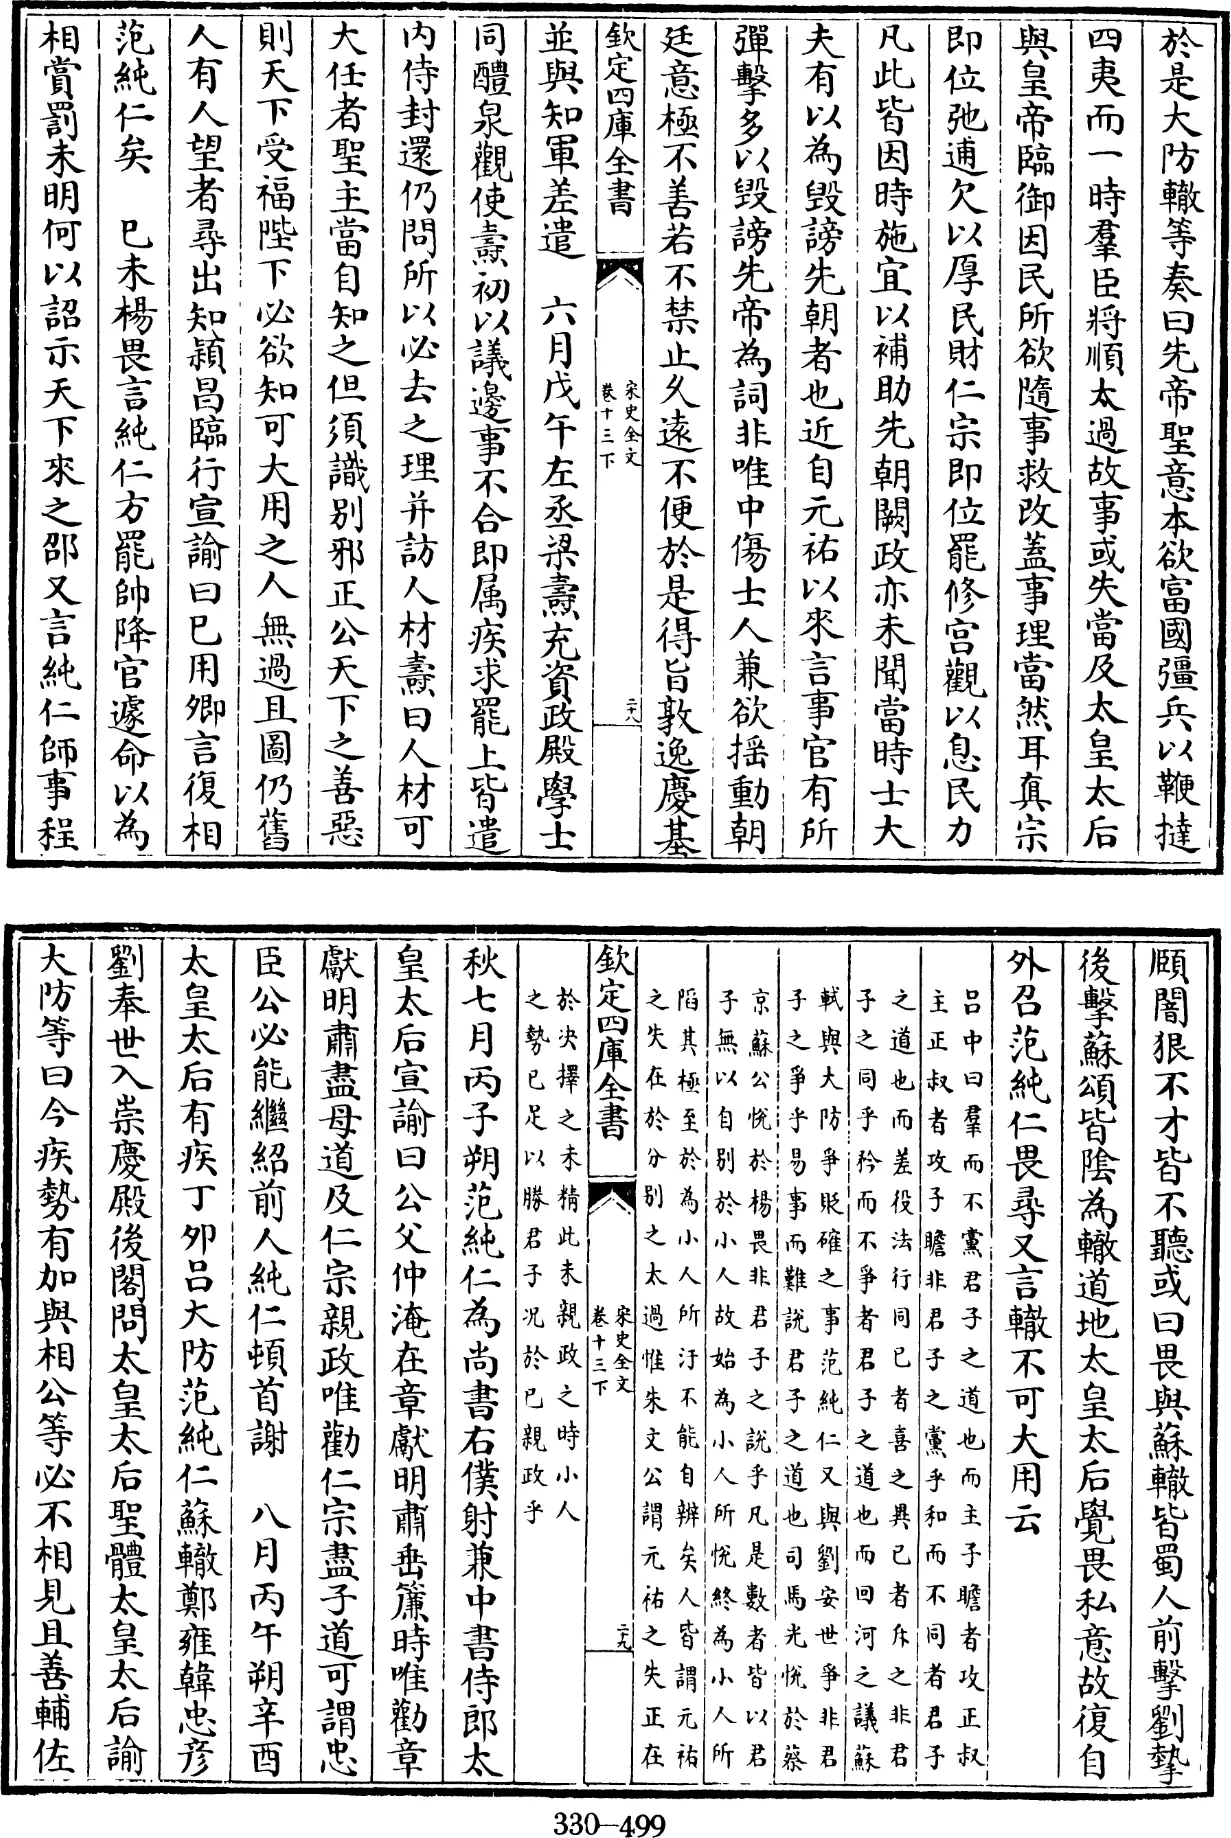 於是大防轍等奏曰先帝聖意本欲富國彊兵以鞭撻
四夷而一時羣臣將順太過故事或失當及太皇太后
與皇帝臨御因民所欲隨事救改蓋事理當然耳真宗
即位弛逋欠以厚民財仁宗即位罷修宫觀以息民力
凡此皆因時施宜以補助先朝闕政亦未聞當時士大
夫有以為毀謗先朝者也近自元祐以來言事官有所
彈擊多以毀謗先帝為詞非唯中傷士人兼欲揺動朝
廷意極不善若不禁止久遠不便於是得旨敦逸慶基
欽定四庫全書
宋史全文
卷十三下
二十八
並與知軍差遣　六月戊午左丞梁燾充資政殿學士
同醴泉觀使燾初以議邊事不合即属疾求罷上皆遣
内侍封還仍問所以必去之理并訪人材燾曰人材可
大任者聖主當自知之但須識别邪正公天下之善惡
則天下受福陛下必欲知可大用之人無過且圖仍舊
人有人望者尋出知穎昌臨行宣諭曰已用卿言復相
范純仁矣　巳未楊畏言純仁方罷帥降官遽命以為
相賞罰未明何以詔示天下來之邵又言純仁師事程
頤闇狠不才皆不聽或曰畏與蘇轍皆蜀人前擊劉摯
後擊蘇頌皆陰為轍道地太皇太后覺畏私意故復自
外召范純仁畏尋又言轍不可大用云
吕中曰羣而不黨君子之道也而主子瞻者攻正叔
主正叔者攻子瞻非君子之黨乎和而不同者君子
之道也而差役法行同已者喜之異已者斥之非君
子之同乎矜而不爭者君子之道也而回河之議蘇
軾與大防爭貶確之事范純仁又與劉安世爭非君
子之爭乎易事而難説君子之道也司馬光悅於蔡
京蘇公悅於楊畏非君子之説乎凡是數者皆以君
子無以自别於小人故始為小人所悅終為小人所
陷其極至於為小人所汙不能自辨矣人皆謂元祐
之失在於分别之太過惟朱文公謂元祐之失正在
欽定四庫全書
宋史全文
卷十三下
二十九
於決擇之未精此未親政之時小人
之勢已足以勝君子况於已親政乎
秋七月丙子朔范純仁為尚書右僕射兼中書侍郎太
皇太后宣諭曰公父仲淹在章獻明肅垂簾時唯勸章
獻明肅盡母道及仁宗親政唯勸仁宗盡子道可謂忠
臣公必能繼紹前人純仁頓首謝　八月丙午朔辛酉
太皇太后有疾丁夘吕大防范純仁蘇轍鄭雍韓忠彦
劉奉世入崇慶殿後閣問太皇太后聖體太皇太后諭
大防等曰今疾勢有加與相公等必不相見且善輔佐
330-499